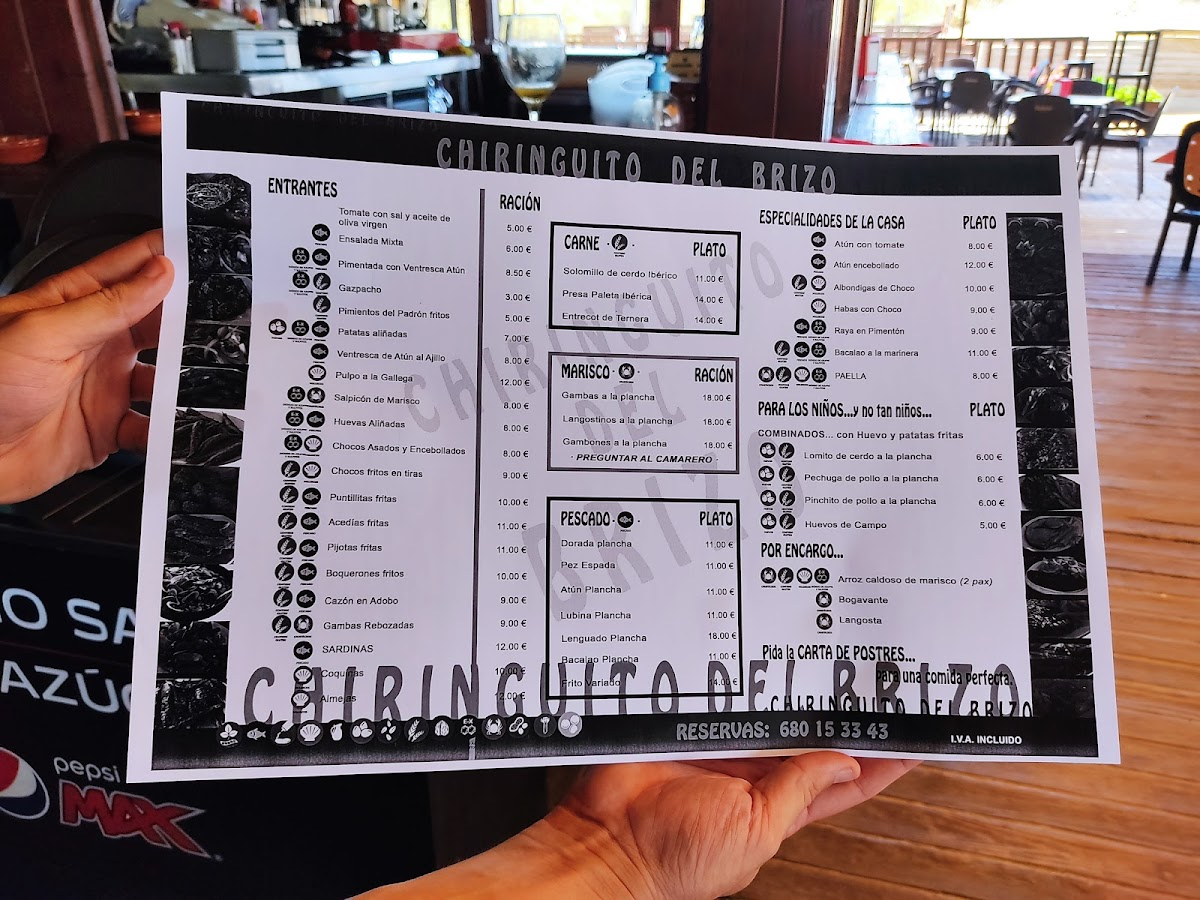 CHIRINGUITO DEL BRIZO
CHIRINGUITO DEL BRIZO
ENTRANTES
RACIÓN
Tomate con sal y aceite de
oliva virgen
5.00 €
Ensalada Mixta
6.00 €
Pimentada con Ventresca Atún
8.50 €
Gazpacho
3.00 €
Pimientos del Padrón fritos
5.00 €
Patatas aliñadas
7.00 €
Ventresca de Atún al Ajillo
8.00 €
Pulpo a la Gallega
12.00 €
Salpicón de Marisco
8.00 €
Huevas Aliñadas
8.00 €
Chocos Asados y Encebollados
8.00 €
Chocos fritos en tiras
9.00 €
Puntillitas fritas
10.00 €
Acedías fritas
11.00 €
Pijotas fritas
11.00 €
Boquerones fritos
10.00 €
Cazón en Adobo
9.00 €
Gambas Rebozadas
9.00 €
SARDINAS
12.00 €
Coquinas
10.00 €
Almejas
12.00 €
CARNE
PLATO
Solomillo de cerdo Ibérico
11.00 €
Presa Paleta Ibérica
14.00 €
Entrecot de Ternera
14.00 €
MARISCO
RACIÓN
Gambas a la plancha
18.00 €
Langostinos a la plancha
18.00 €
Gambones a la plancha
18.00 €
· PREGUNTAR AL CAMARERO ·
PESCADO
PLATO
Dorada plancha
11.00 €
Pez Espada
11.00 €
Atún Plancha
11.00 €
Lubina Plancha
11.00 €
Lenguado Plancha
18.00 €
Bacalao Plancha
11.00 €
Frito Variado
14.00 €
ESPECIALIDADES DE LA CASA
PLATO
Atún con tomate
8.00 €
Atún encebollado
12.00 €
Albondigas de Choco
10.00 €
Habas con Choco
9.00 €
Raya en Pimentón
9.00 €
Bacalao a la marinera
11.00 €
PAELLA
8.00 €
PARA LOS NIÑOS...y no tan niños...
PLATO
COMBINADOS... con Huevo y patatas fritas
Lomito de cerdo a la plancha
6.00 €
Pechuga de pollo a la plancha
6.00 €
Pinchito de pollo a la plancha
6.00 €
Huevos de Campo
5.00 €
POR ENCARGO...
Arroz caldoso de marisco (2 pax)
Bogavante
Langosta
Pida la CARTA DE POSTRES...
para una comida perfecta.
CHIRINGUITO DEL BRIZO
CHIRINGUITO DEL BRIZO
CHIRINGUITO DEL BRIZO
RESERVAS: 680 15 33 43
I.V.A. INCLUIDO
O SA
AZÚC
pepsi
MAX